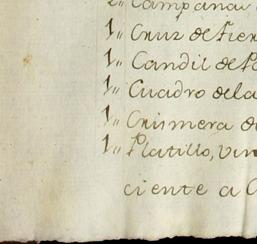 Campana
1,, Cruz de fier
1,, Candil de
1,, Cuadro de la
1,, Crismera de
1,, Platillo, vin
ciente a